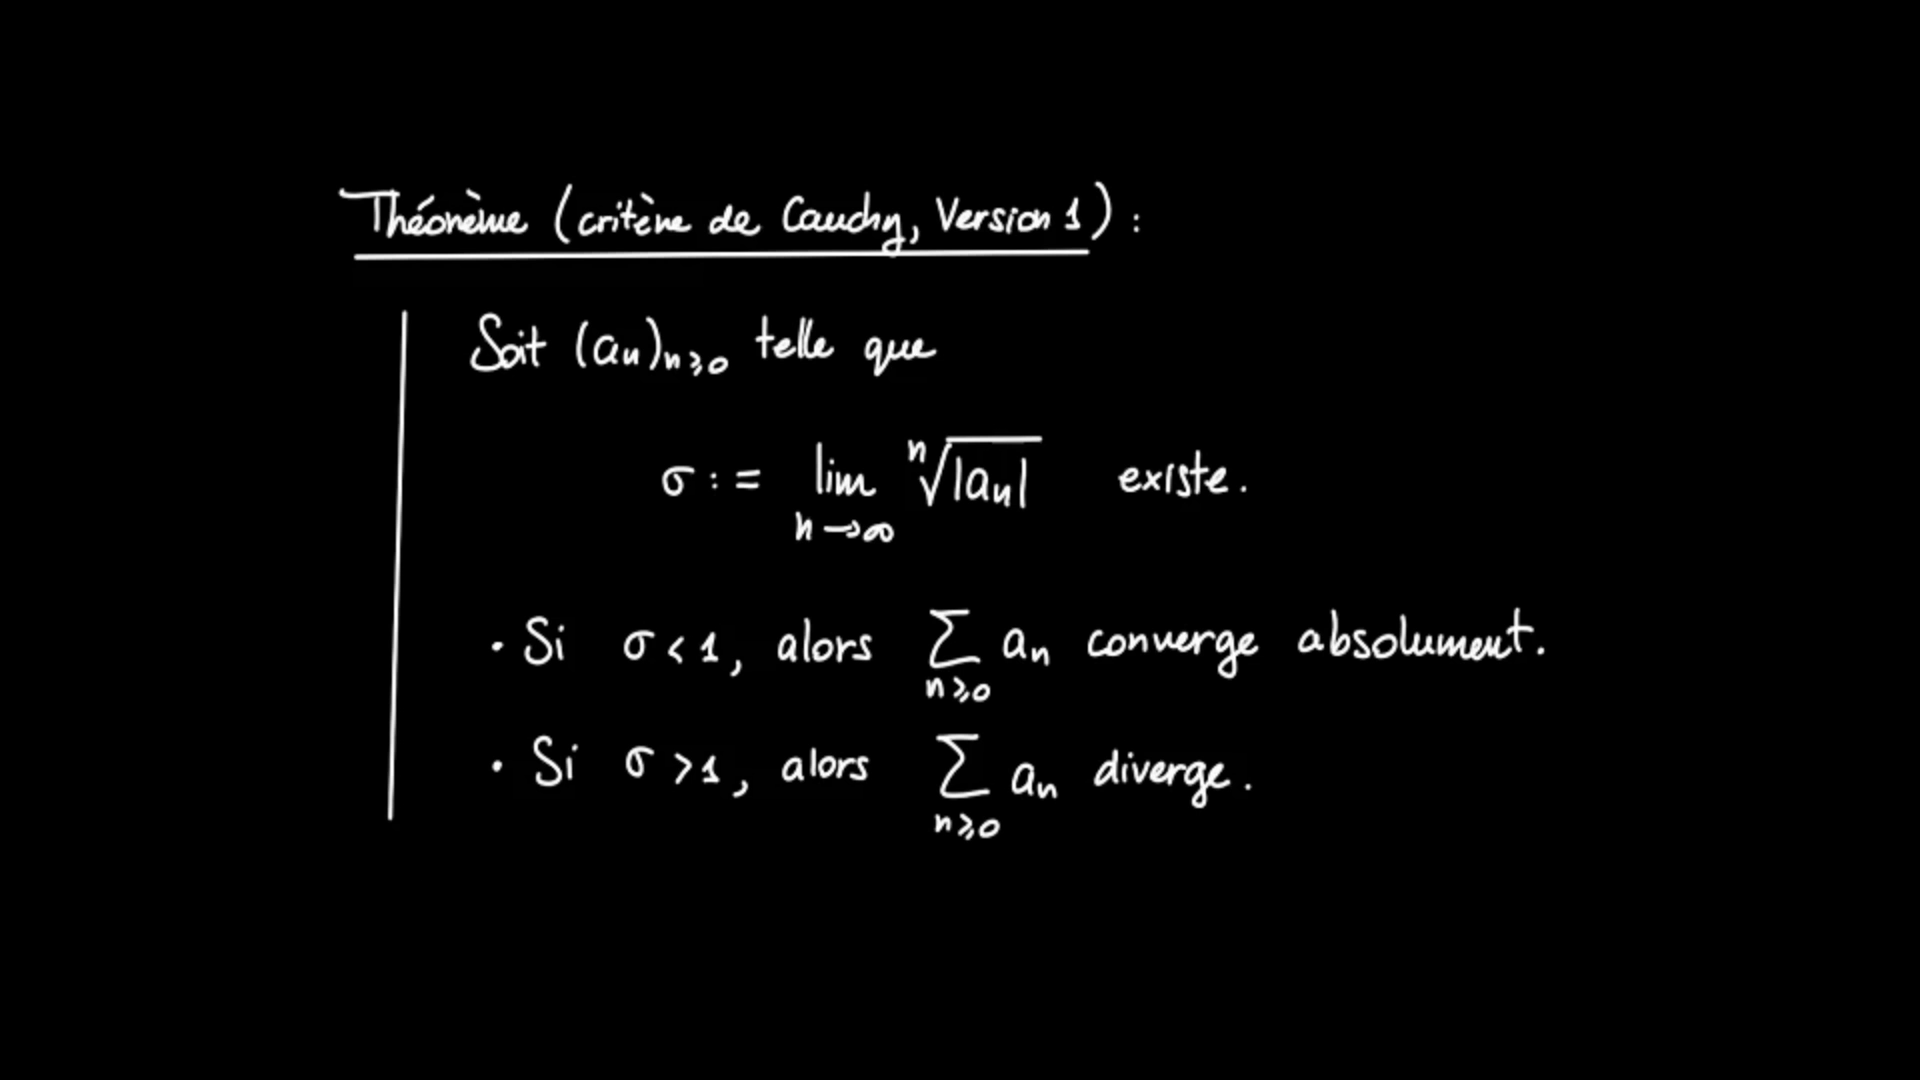 Théorème (critère de Cauchy, Version 1) :
Soit (aₙ)ₙ⩾₀ telle que
σ := lim n→∞ ⁿ√|aₙ| existe.
• Si σ < 1, alors ∑ n⩾0 aₙ converge absolument.
• Si σ > 1, alors ∑ n⩾0 aₙ diverge.